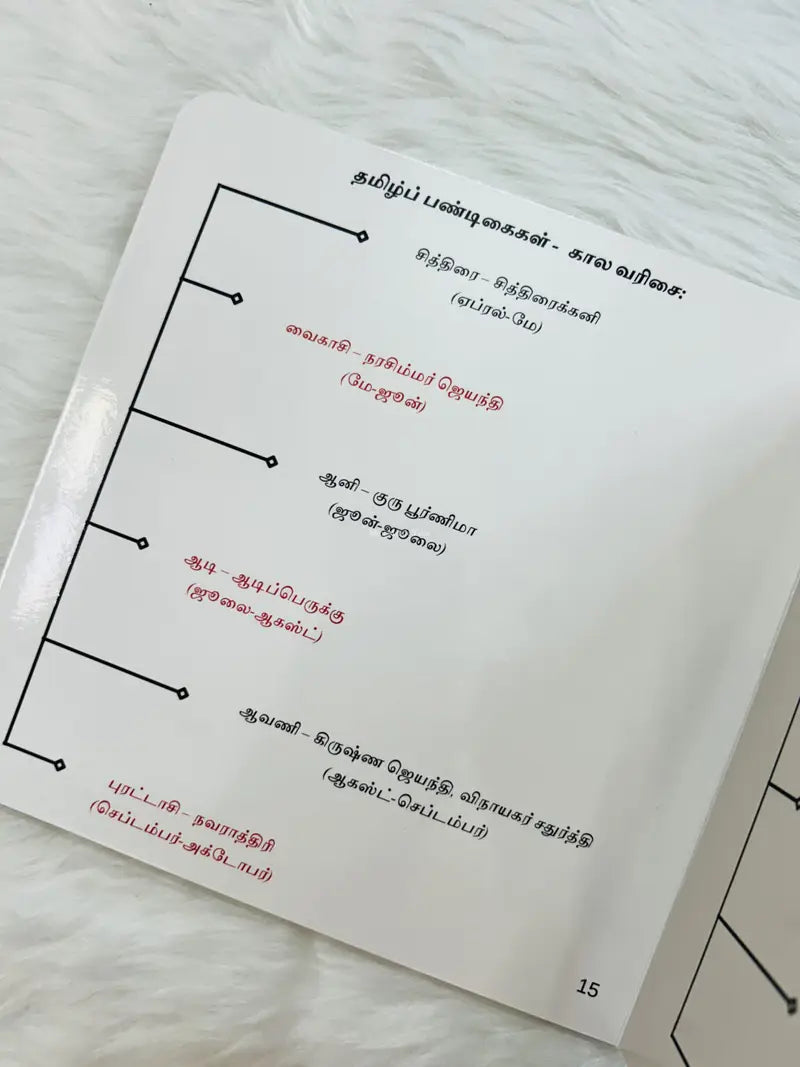 தமிழ்ப் பண்டிகைகள் - கால வரிசை:
சித்திரை – சித்திரைக்கனி
(ஏப்ரல்-மே)
வைகாசி – நரசிம்மர் ஜெயந்தி
(மே-ஜூன்)
ஆனி – குரு பூர்ணிமா
(ஜூன்-ஜூலை)
ஆடி – ஆடிப்பெருக்கு
(ஜூலை-ஆகஸ்ட்)
ஆவணி – கிருஷ்ண ஜெயந்தி, விநாயகர் சதுர்த்தி
(ஆகஸ்ட்-செப்டம்பர்)
புரட்டாசி – நவராத்திரி
(செப்டம்பர்-அக்டோபர்)
15